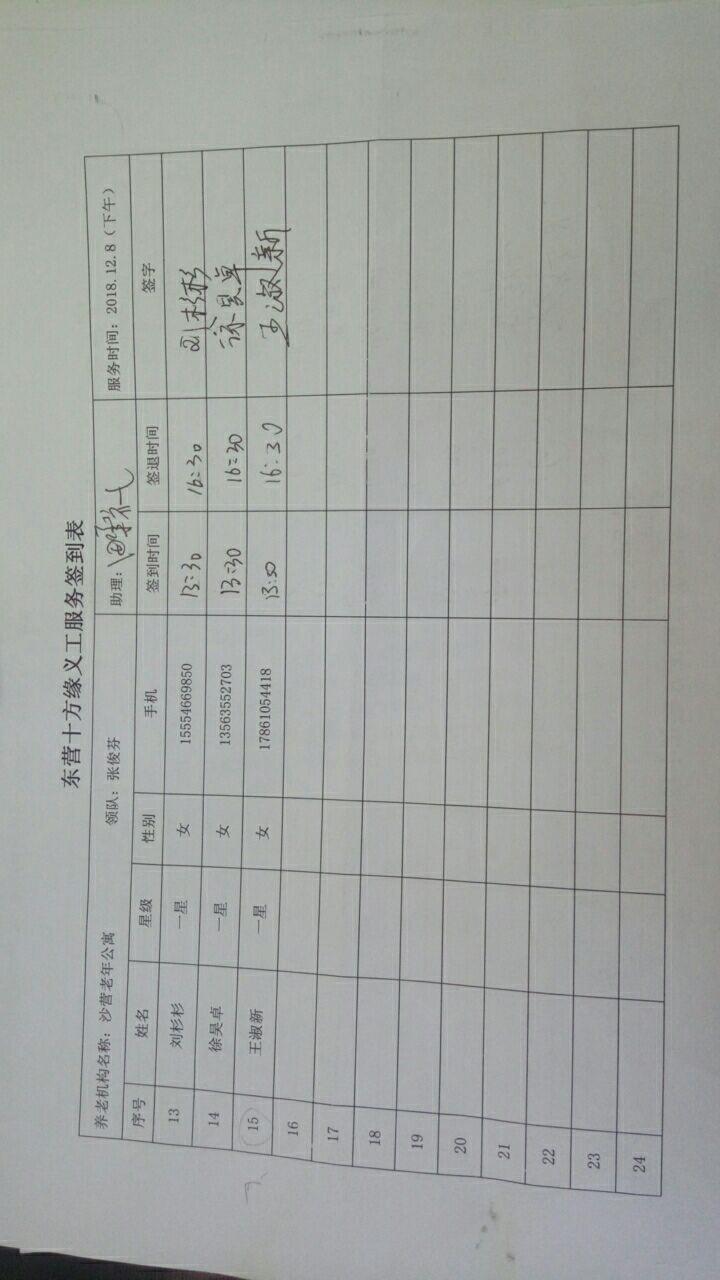 东营十方缘义工服务签到表
养老机构名称：沙营老年公寓 领队：张俊芬 助理： 服务时间：2018.12.8（下午）
序号 姓名 星级 性别 手机 签到时间 签退时间 签字
13 刘杉杉 一星 女 15554669850 13:30 16:30 刘杉杉
14 徐吴卓 一星 女 13563552703 13:30 16:30
15 王淑新 一星 女 17861054418 13:50 16:30 王淑新
16
17
18
19
20
21
22
23
24